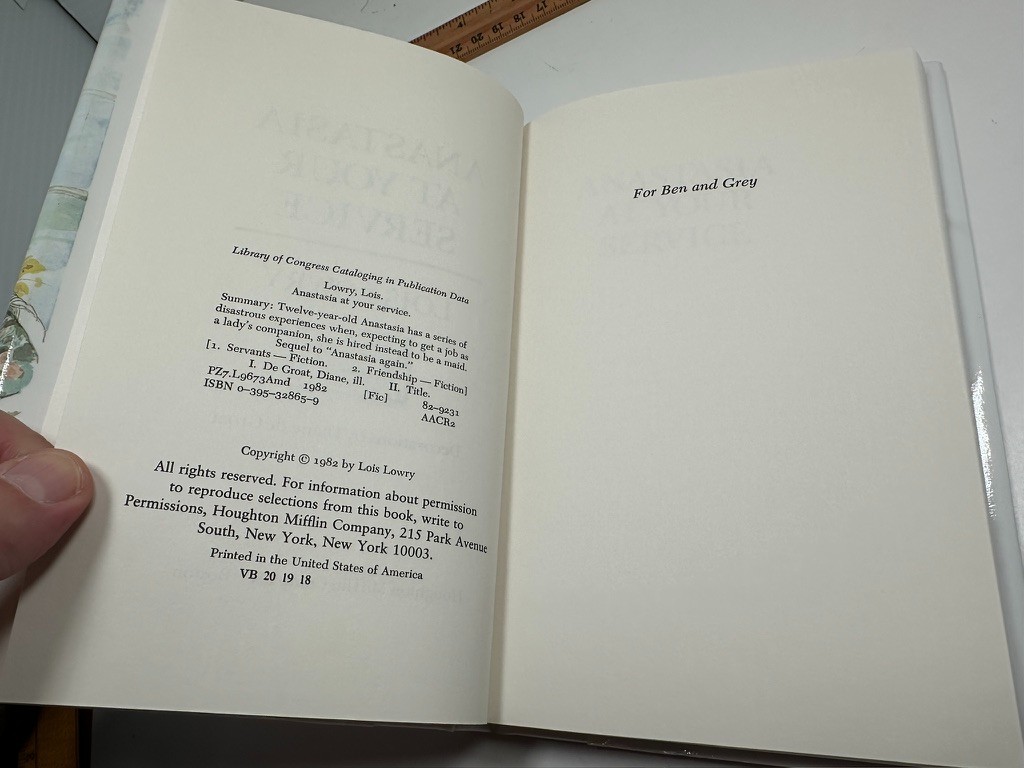 Library of Congress Cataloging in Publication Data
Lowry, Lois.
Anastasia at your service.
Summary: Twelve-year-old Anastasia has a series of
disastrous experiences when, expecting to get a job as
a lady's companion, she is hired instead to be a maid.
Sequel to "Anastasia again."
[1. Servants — Fiction. 2. Friendship — Fiction]
I. De Groat, Diane, ill. II. Title.
PZ7.L9673Amd 1982 [Fic] 82–9231
ISBN 0–395–32865–9 AACR2
Copyright © 1982 by Lois Lowry
All rights reserved. For information about permission
to reproduce selections from this book, write to
Permissions, Houghton Mifflin Company, 215 Park Avenue
South, New York, New York 10003.
Printed in the United States of America
VB 20 19 18
For Ben and Grey
ANASTASIA
AT YOUR
SERVICE
21 20 19 18 17